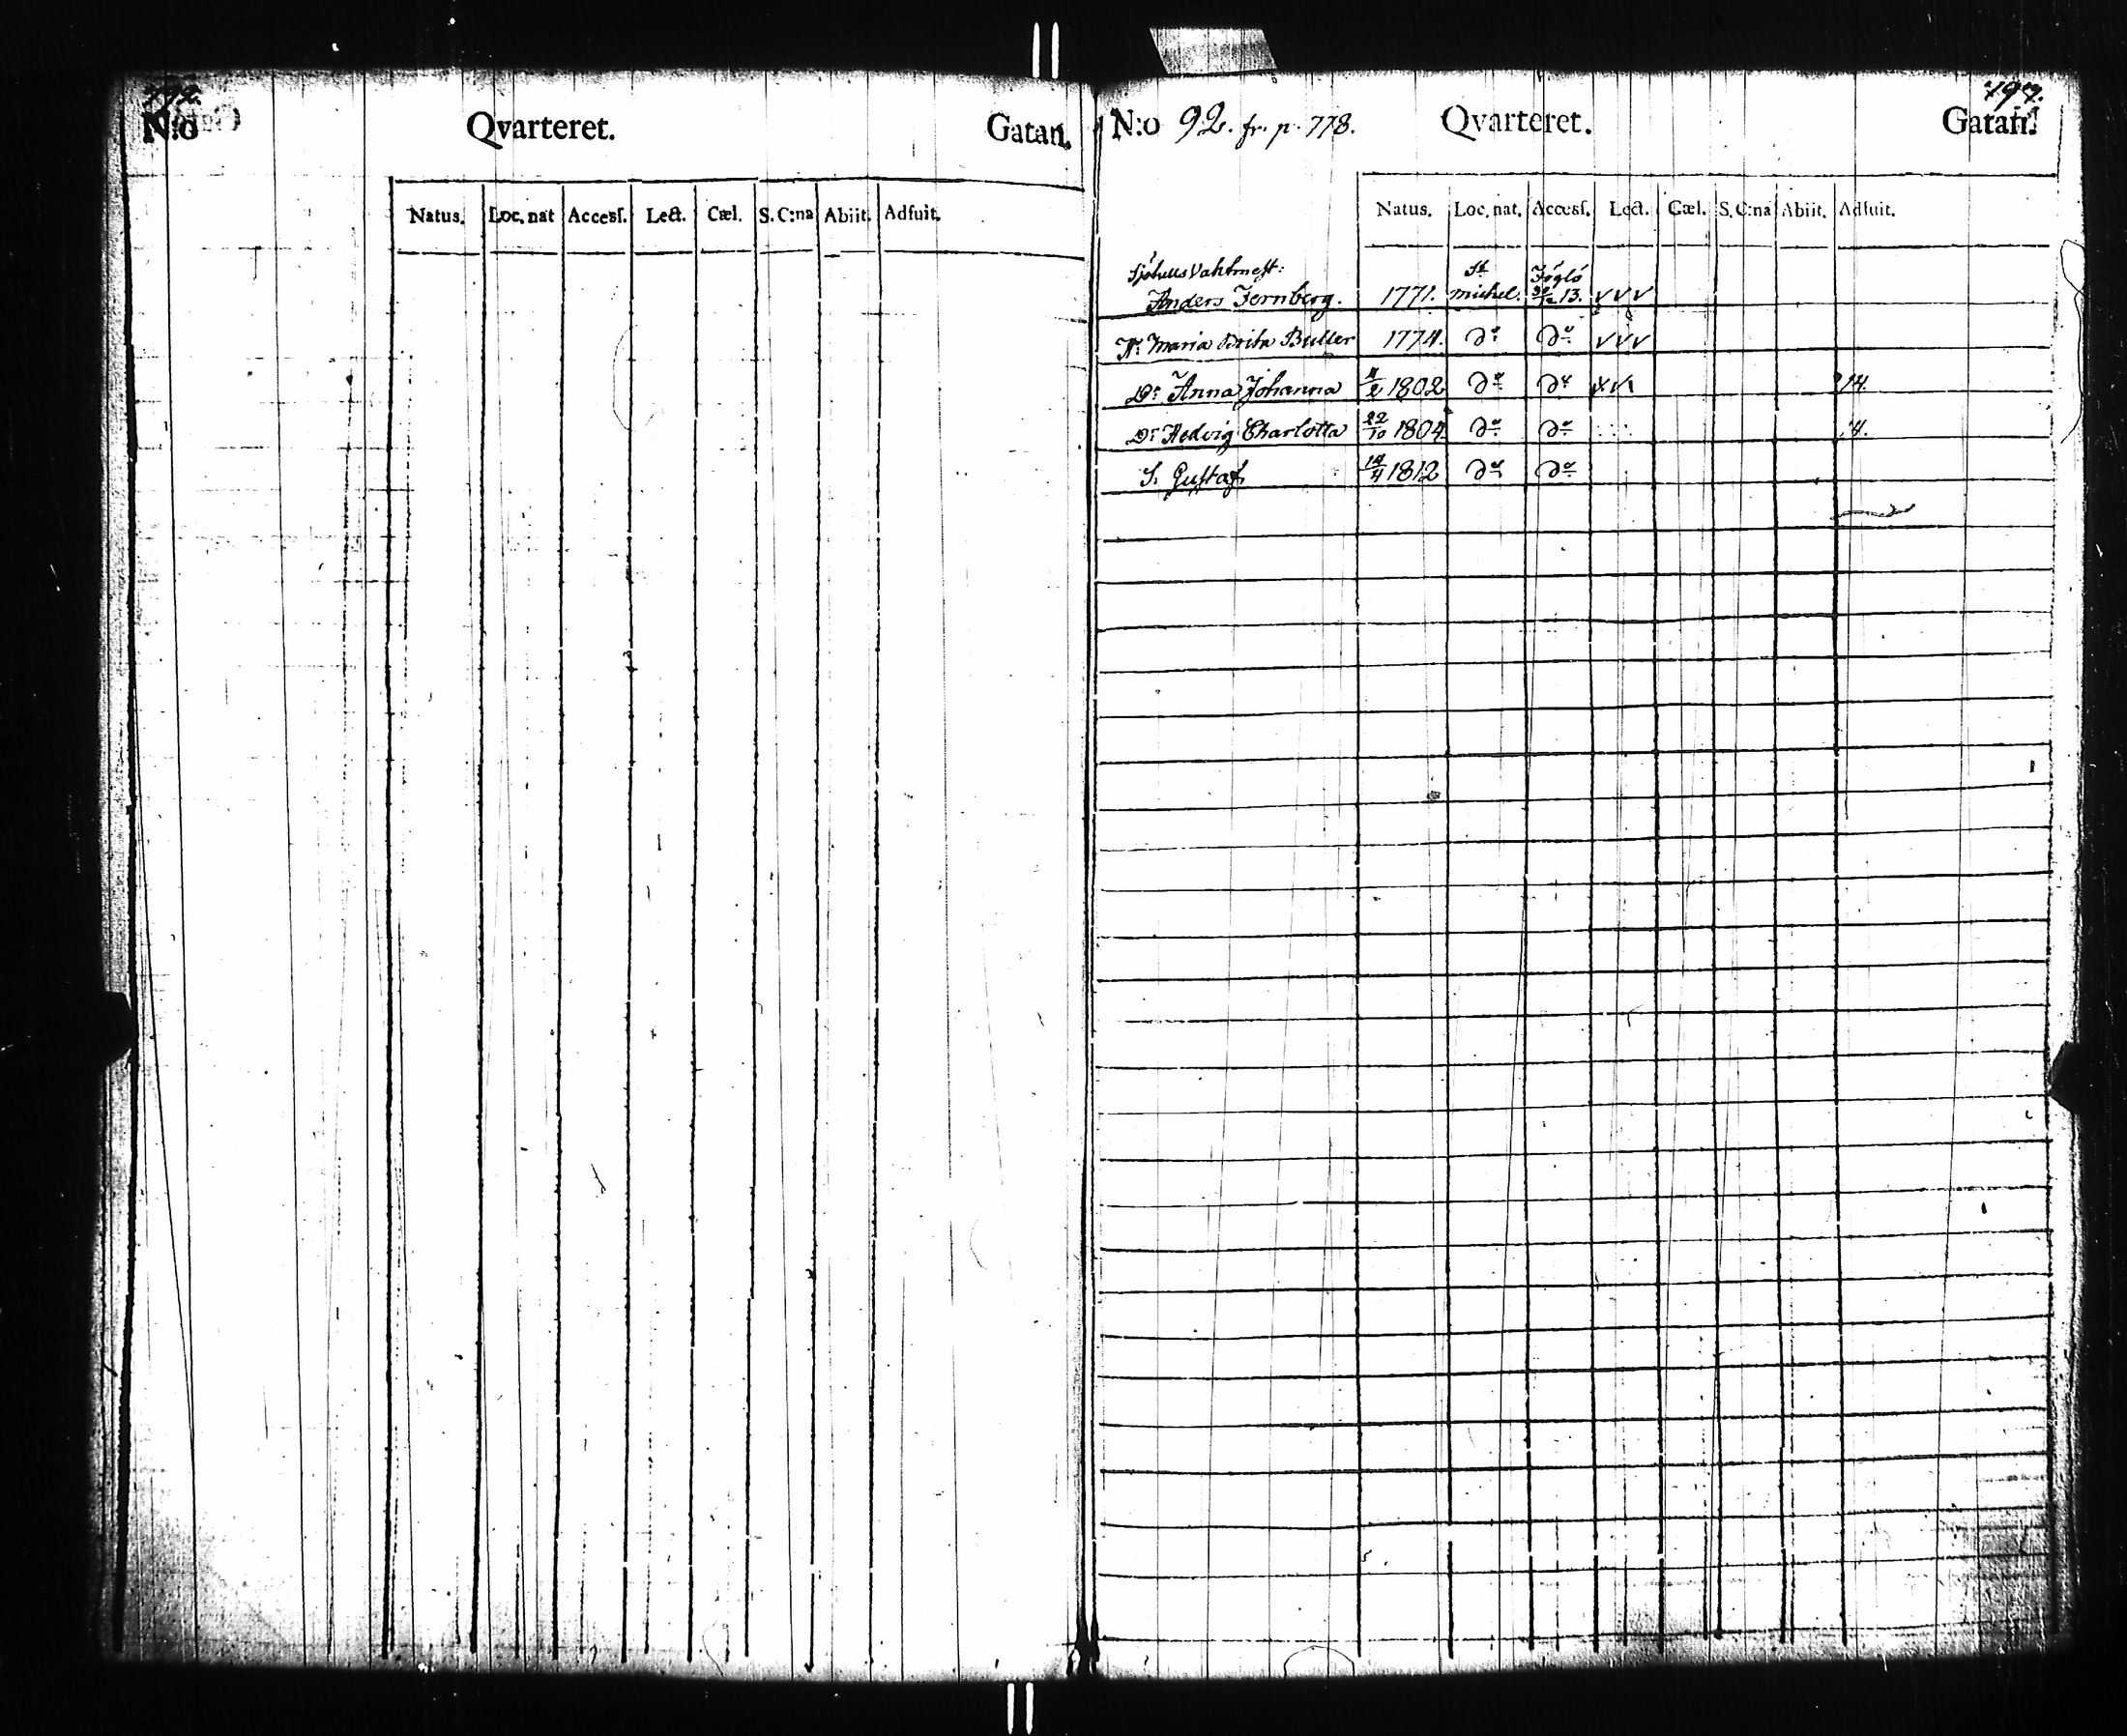 N:o Qvarteret. Gatan.
Natus. Loc. nat Accesſ. Lect. Cæl. S. C:na Abiit. Adfuit.
N:o 92. fr. p. 778. Qvarteret. Gatan.
Natus. Loc. nat. Accesſ. Lect. Cæl. S. C:na Abiit. Adfuit.
St Föglö
Anders Fernberg. 1771. Michel. 13.
Maria Brita Buller 1774. do do
Dr Anna Johanna 4/2 1802 do do 14.
Dr Hedvig Charlotta 22/10 1804. do do
S. Gustaf 14/4 1812 do do